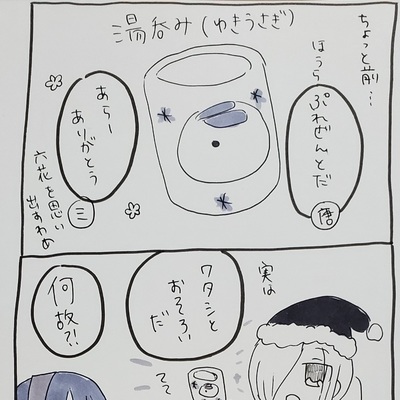 ちょっと前…
湯呑み(ゆきうさぎ)
ほうら
ぷれぜんとだ
磨
あらー
ありがとう
三
六花を思い
出すわぁ
実は
ワタシと
おそろい
だ
てて
何故?!